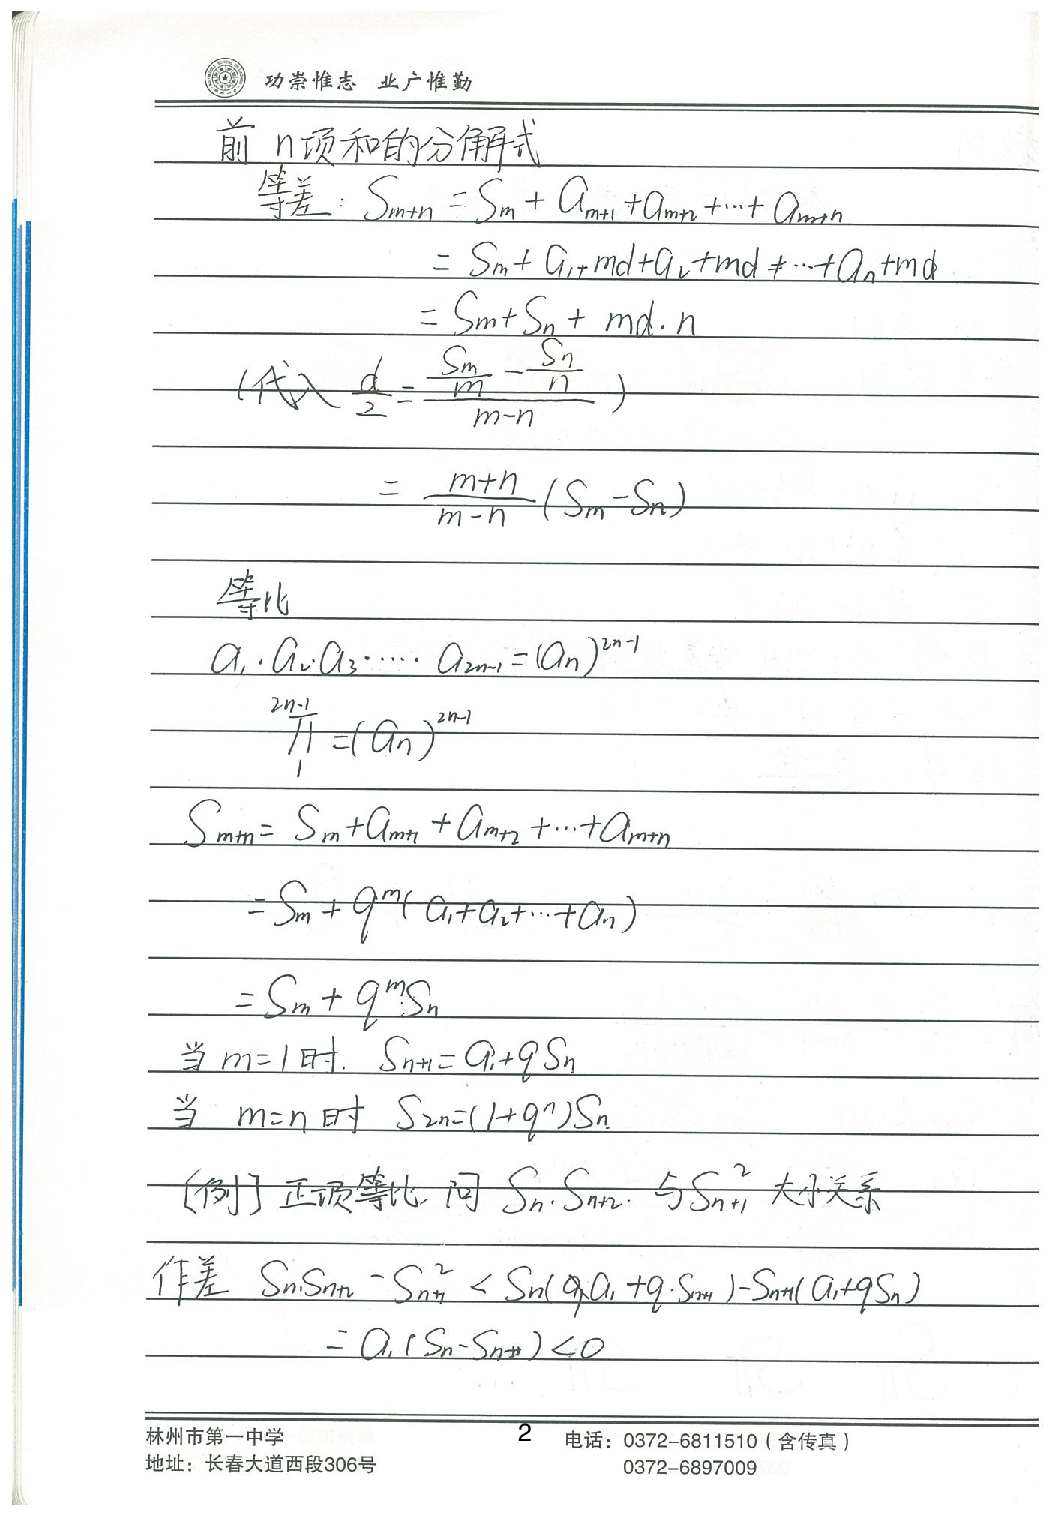 功崇惟志 业广惟勤
前 n项和的分解式
等差: Sm+n = Sm + am+1 + am+2 + ··· + am+n
= Sm + a1 + md + a2 + md + ··· + an + md
= Sm + Sn + md · n
(代入 d/2 = (Sm/m - Sn/n)/(m-n))
= (m+n)/(m-n) (Sm - Sn)
等比
a1 · a2 · a3 · ···· a2n-1 = (an)^2n-1
2n-1
∏ = (an)^2n-1
1
Sm+n = Sm + am+1 + am+2 + ··· + am+n
= Sm + q^m (a1 + a2 + ··· + an)
= Sm + q^m · Sn
当 m=1 时. Sn+1 = a1 + qSn
当 m=n 时 S2n = (1+q^n)Sn.
[例] 正项等比. 问 Sn · Sn+2 与 Sn+1^2 大小关系
作差 Sn·Sn+2 - Sn+1^2 < Sn( a1 + q·Sn+1) - Sn+1(a1 + qSn)
= a1(Sn - Sn+1) < 0
林州市第一中学 2 电话: 0372-6811510 (含传真)
地址: 长春大道西段306号 0372-6897009